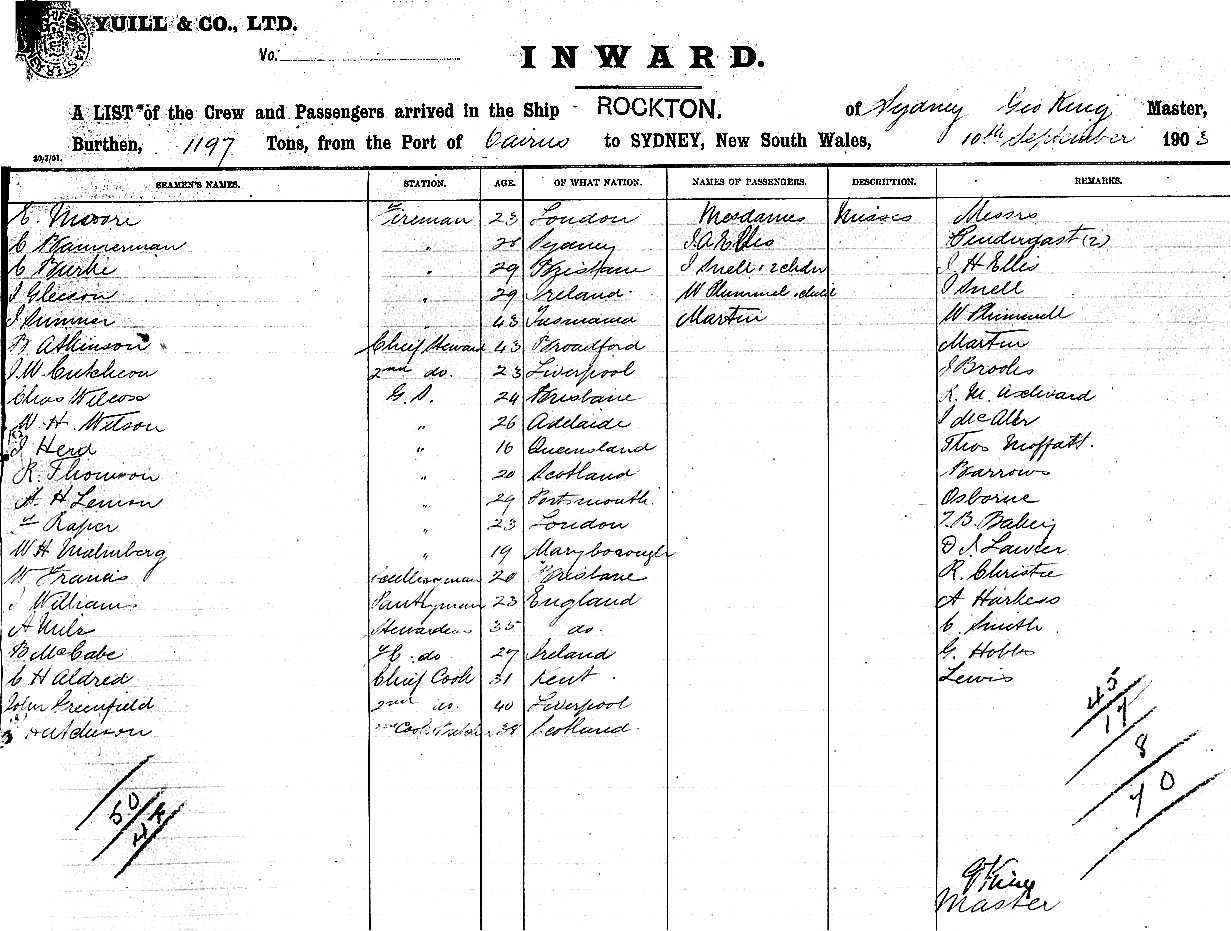 S. YUILL & CO., LTD.
Vo.
INWARD.
A LIST of the Crew and Passengers arrived in the Ship ROCKTON. of Sydney Geo King Master,
Burthen, 1197 Tons, from the Port of Cairns to SYDNEY, New South Wales, 10th September 1903
20/7/01.
SEAMEN'S NAMES. STATION. AGE. OF WHAT NATION. NAMES OF PASSENGERS. DESCRIPTION. REMARKS.
E. Moore Fireman 23 London Mesdames Misses Messrs
C Bannerman " 28 Sydney J. A. Ellis Pendergast (2)
C Burke " 29 Brisbane J Snell & 2 chdn J H Ellis
J Gleeson " 29 Ireland. W Plummel & child J Snell
J Sumner 43 Tasmania Martin W Plummell
B Atkinson Chief Steward 43 Broadford Martin
J. W Cutcheon 2nd do. 23 Liverpool J Brooks
Chas Wilcox G. S. 24 Brisbane R. M.
W. H. Wilson " 26 Adelaide J McAler
J Herd " 16 Queensland Thos Moffatt.
R. Thomson " 20 Scotland Barrows
A. H Lemon " 29 Portsmouth. Osborne
F Raper " 23 London T. B.
W H Malmberg " 19 Maryborough D J. Lawler
W Francis 20 Brisbane R. Christie
J Williams Pantryman 23 England A Harkess
A Stewardess 35 do. C. Smith
B McCabe F.C. do 27 Ireland G. Hobbs
C H Aldred Chief Cook 31 Kent. Lewis
John Greenfield 2nd do. 40 Liverpool
Hutchison Cook 38 Scotland.
45
17
8
70
50
44
G King
Master